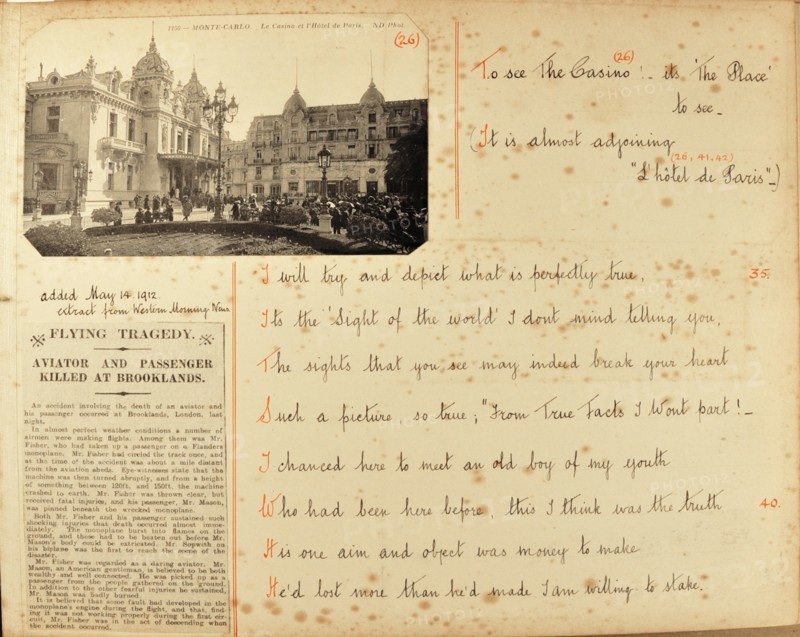 1150 — MONTE-CARLO. Le Casino et l'Hôtel de Paris. ND Phot.
(26)
To see The Casino (26) ! – its 'The Place'
to see –
(It is almost adjoining
(26, 41, 42)
"L'hôtel de Paris" –)
I will try and depict what is perfectly true, 35.
Its the 'Sight of the world' I dont mind telling you,
The sights that you see may indeed break your heart
Such a picture so true ; "From True Facts I Wont part ! –
I chanced here to meet an old boy of my youth
Who had been here before, this I think was the truth 40.
His one aim and object was money to make
He'd lost more than he'd made I am willing to stake.
added May 14. 1912.
extract from Western Morning News
FLYING TRAGEDY.
AVIATOR AND PASSENGER
KILLED AT BROOKLANDS.
An accident involving the death of an aviator and
his passenger occurred at Brooklands, London, last
night.
In almost perfect weather conditions a number of
airmen were making flights. Among them was Mr.
Fisher, who had taken up a passenger on a Flanders
monoplane. Mr. Fisher had circled the track once, and
at the time of the accident was about a mile distant
from the aviation sheds. Eye-witnesses state that the
machine was then turned abruptly, and from a height
of something between 120ft. and 150ft. the machine
crashed to earth. Mr. Fisher was thrown clear, but
received fatal injuries, and his passenger, Mr. Mason,
was pinned beneath the wrecked monoplane.
Both Mr. Fisher and his passenger sustained such
shocking injuries that death occurred almost imme-
diately. The monoplane burst into flames on the
ground, and these had to be beaten out before Mr.
Mason's body could be extricated. Mr. Sopwith on
his biplane was the first to reach the scene of the
disaster.
Mr. Fisher was regarded as a daring aviator. Mr.
Mason, an American gentleman, is believed to be both
wealthy and well connected. He was picked up as a
passenger from the people gathered on the ground.
In addition to the other fearful injuries he sustained,
Mr. Mason was badly burned.
It is believed that some fault had developed in the
monoplane's engine during the flight, and that, find-
ing it was not working properly during the first cir-
cuit, Mr. Fisher was in the act of descending when
the accident occurred.